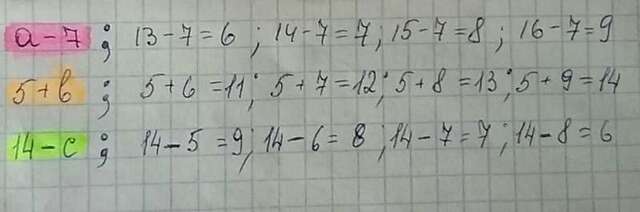 a-7 ; 13-7=6 ; 14-7=7 ; 15-7=8 ; 16-7=9
5+b ; 5+6=11 ; 5+7=12 ; 5+8=13 ; 5+9=14
14-c ; 14-5=9 ; 14-6=8 ; 14-7=7 ; 14-8=6